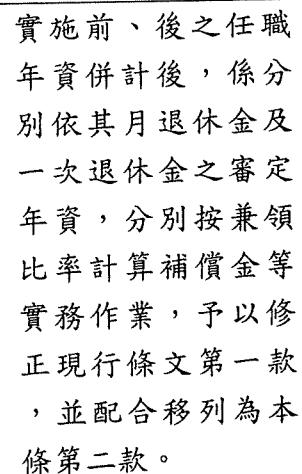 實施前、後之任職
年資併計後，係分
別依其月退休金及
一次退休金之審定
年資，分別按兼領
比率計算補償金等
實務作業，予以修
正現行條文第一款
，並配合移列為本
條第二款。